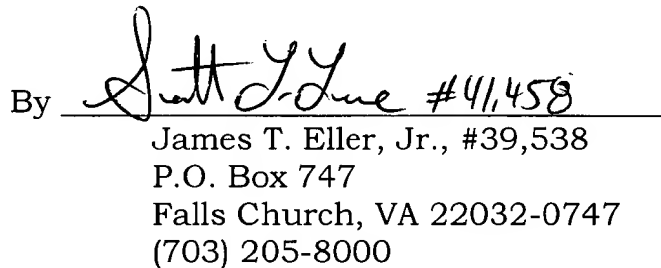 By Scott L. Lowe #41,458
James T. Eller, Jr., #39,538
P.O. Box 747
Falls Church, VA 22032-0747
(703) 205-8000